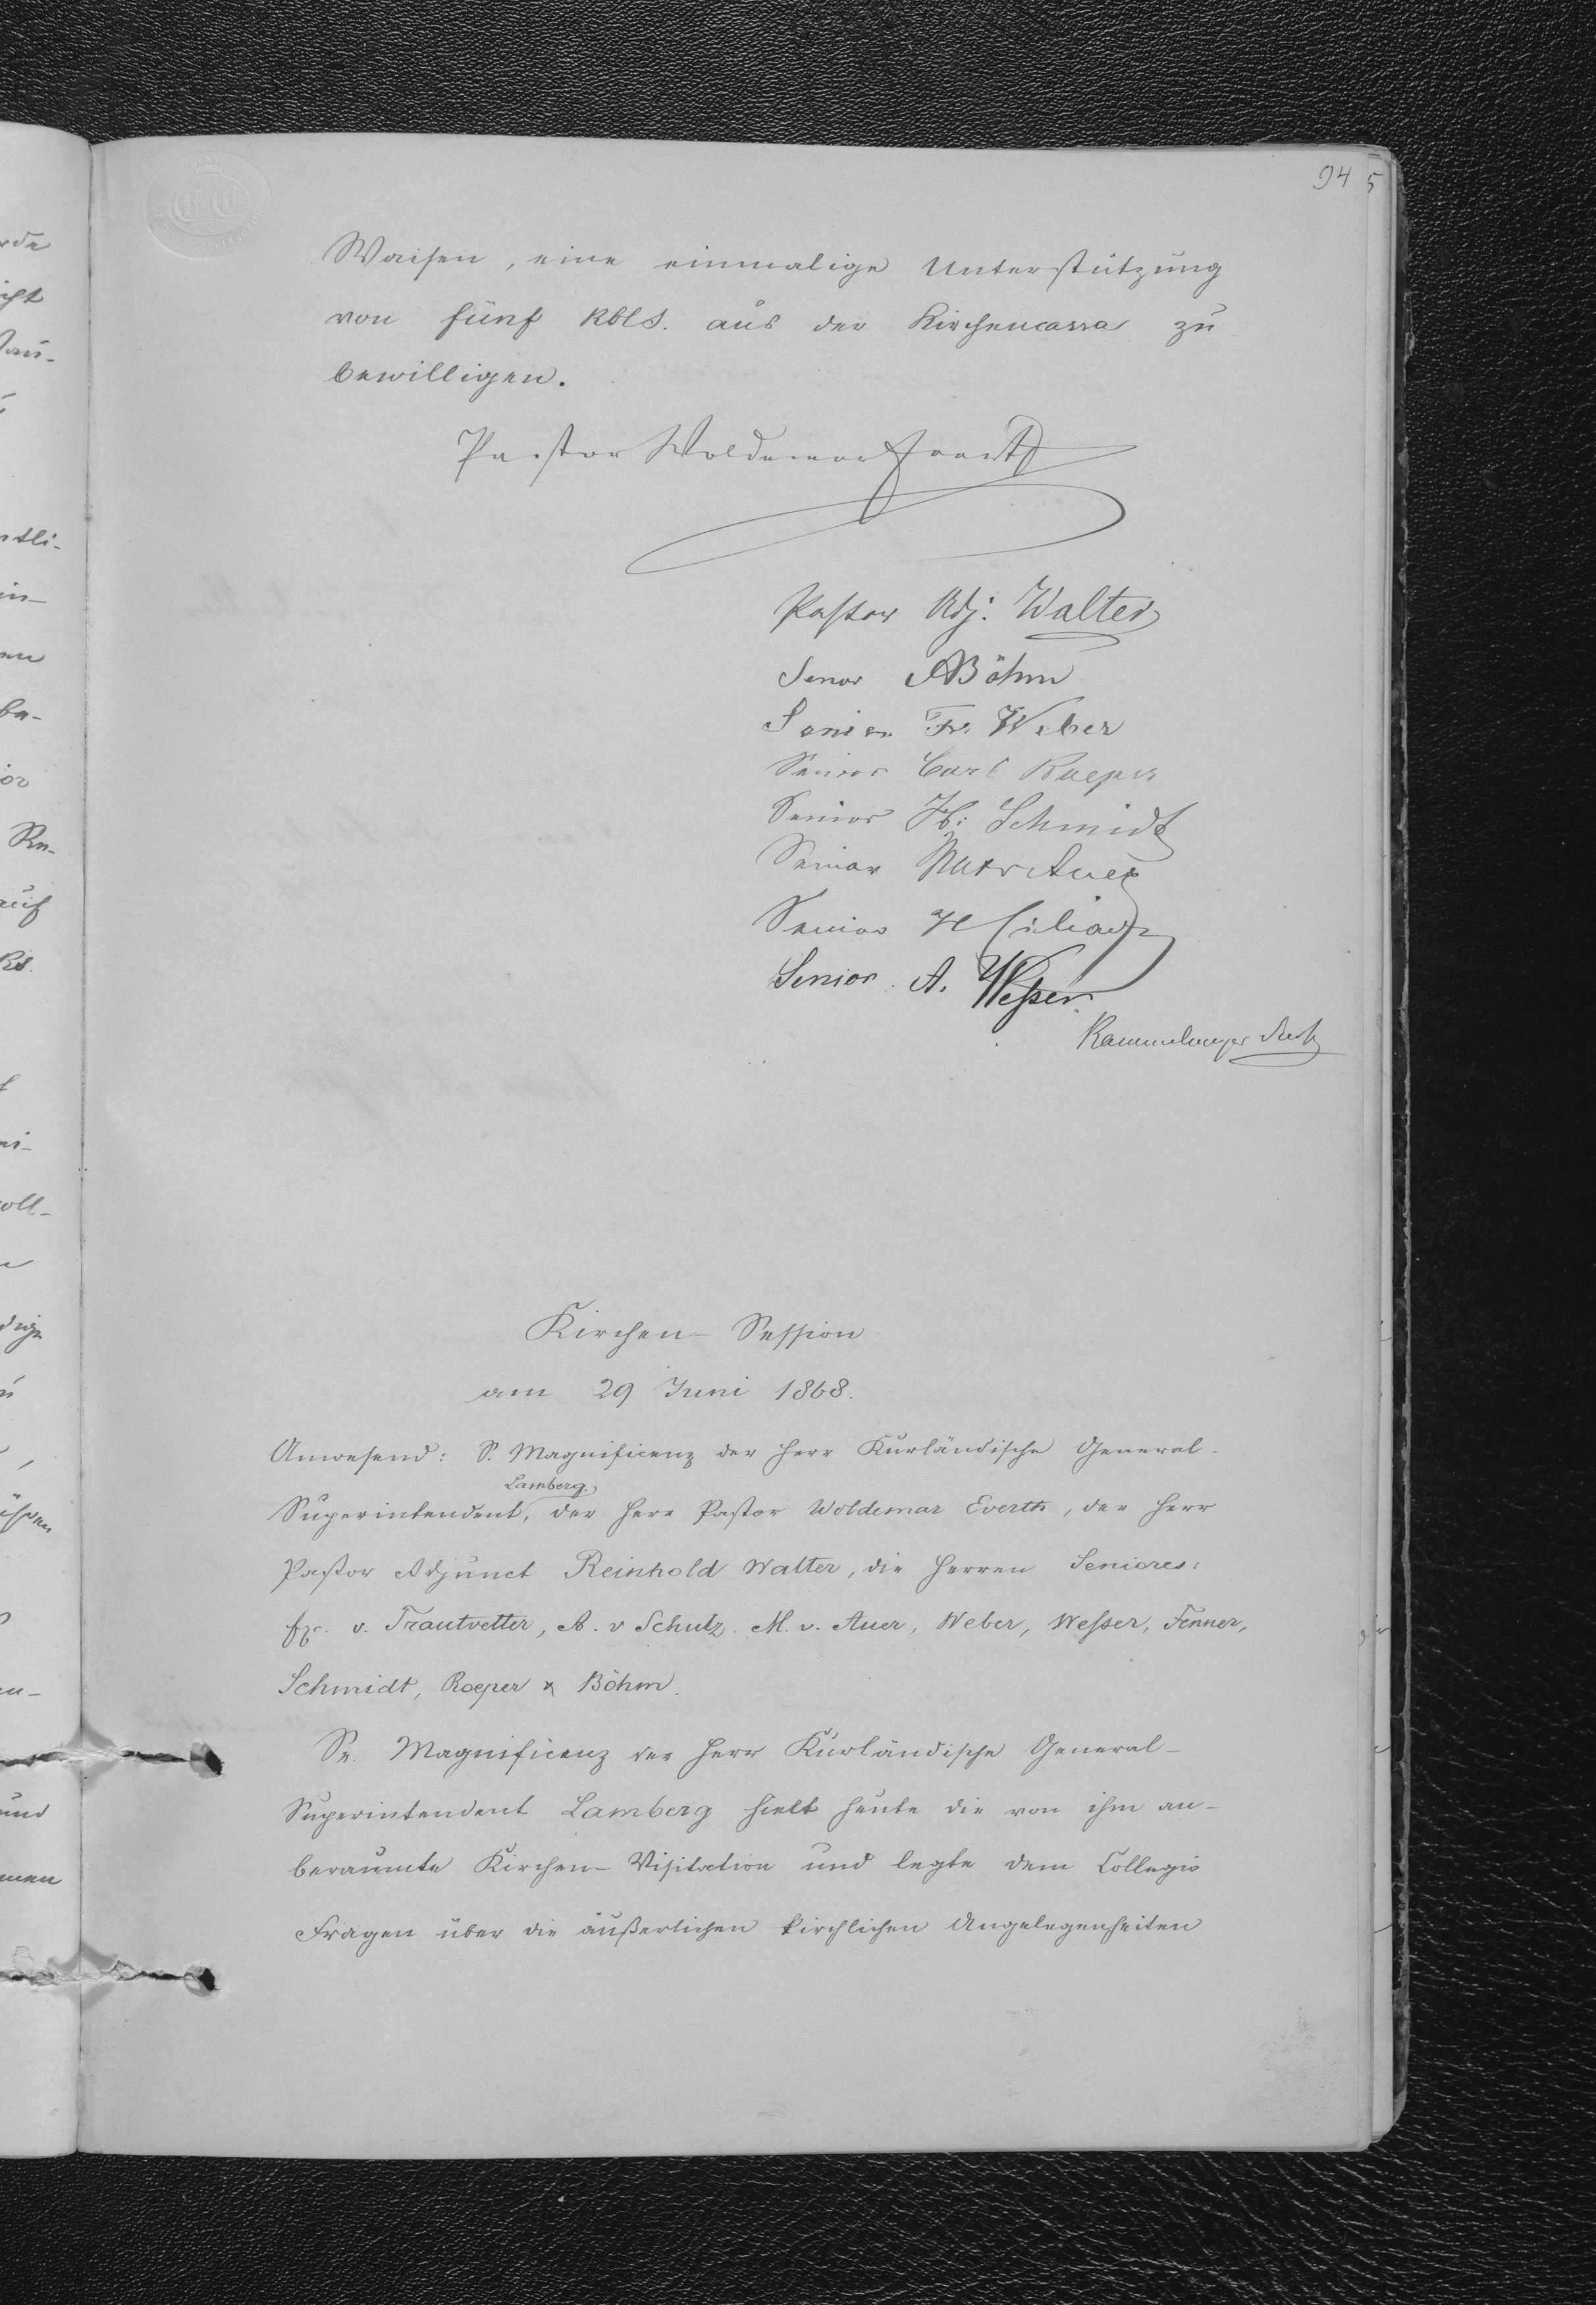 94
5
Waisen, eine einmalige Unterstützung
von fünf RblS. aus der Kirchencassa zu
bewilligen.
Pastor Woldemar Everth
Pastor Adj. Walter
Senor ABöhm
Senior Fr. Weber
Senior Carl Roeper
Senior H: Schmidt
Senior Auer
Senior
Senior. A. Weßer.
Kirchen-Session
am 29 Juni 1868.
Anwesend: S. Magnificenz der Herr Kurländische General-
Lamberg,
Superintendent, der Herr Pastor Woldemar Everth, der Herr
Pastor Adjunct Reinhold Walter, die Herren Seniores:
v. Trautvetter, A. v Schulz. M. v. Auer, Weber, Weßer, Fenner,
Schmidt, Roeper & Böhm.
Se. Magnificenz der Herr Kurländische General-
Superintendent Lamberg hielt heute die von ihm an-
beraumte Kirchen-Visitation und legte dem Collegio
Fragen über die äußerlichen kirchlichen Angelegenheiten